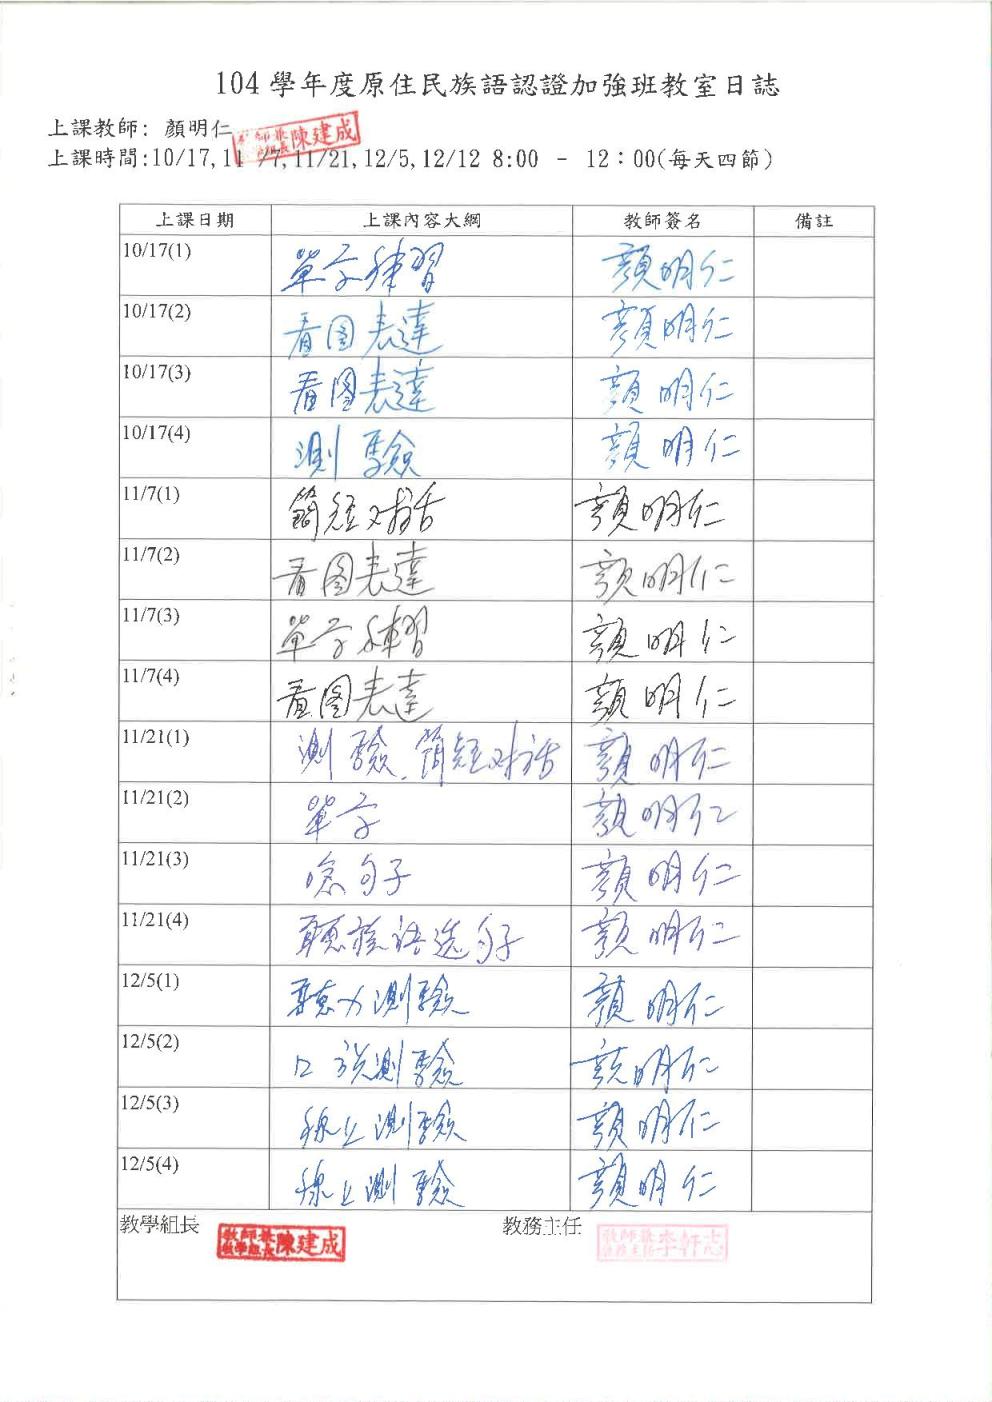 104 學年度原住民族語認證加強班教室日誌
上課教師: 顏明仁
教師兼教學組長陳建成
上課時間:10/17,11/7,11/21,12/5,12/12 8:00 - 12：00(每天四節)
上課日期 上課內容大綱 教師簽名 備註
10/17(1) 單字練習 顏明仁
10/17(2) 看图表達 顏明仁
10/17(3) 看图表達 顏明仁
10/17(4) 測驗 顏明仁
11/7(1) 簡短对話 顏明仁
11/7(2) 看图表達 顏明仁
11/7(3) 單字練習 顏明仁
11/7(4) 看图表達 顏明仁
11/21(1) 測驗.簡短对話 顏明仁
11/21(2) 單字 顏明仁
11/21(3) 唸句子 顏明仁
11/21(4) 聽族語选句子 顏明仁
12/5(1) 聽力測驗 顏明仁
12/5(2) 口說測驗 顏明仁
12/5(3) 線上測驗 顏明仁
12/5(4) 線上測驗 顏明仁
教學組長 教師兼教學組長陳建成 教務主任 教師兼教務主任李軒志